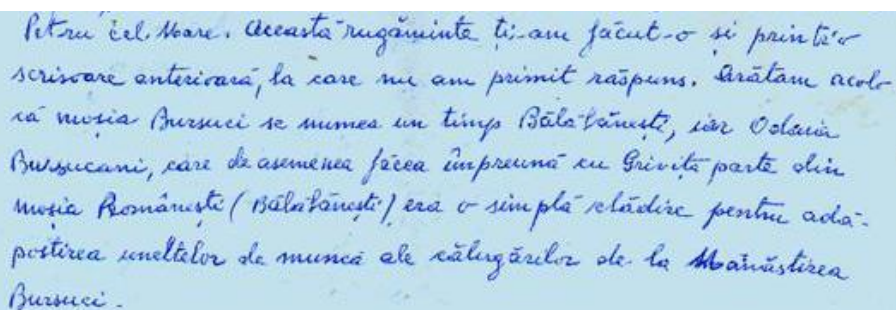 Petru cel Mare. Această rugăminte ți-am făcut-o și printr'o
scrisoare anterioară, la care nu am primit răspuns. Arătam acolo
că moșia Bursuci se numea un timp Bălăbănești, iar Odaia
Bursucani, care de asemenea făcea împreună cu Grivița parte din
moșia Românești (Bălăbănești) era o simplă clădire pentru adă-
postirea uneltelor de muncă ale călugărilor de la Mănăstirea
Bursuci.